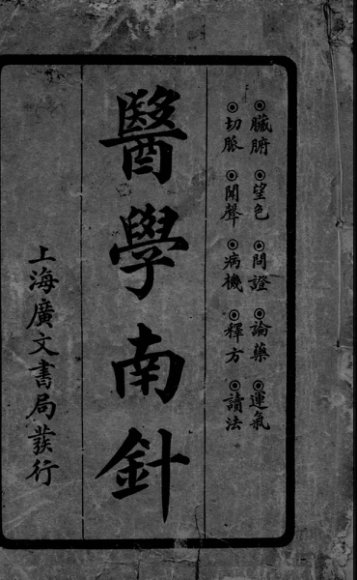 ◉臟腑 ◉望色 ◉問證 ◉論藥 ◉運氣
◉切脈 ◉聞聲 ◉病機 ◉釋方 ◉讀法
醫學南針
上海廣文書局發行